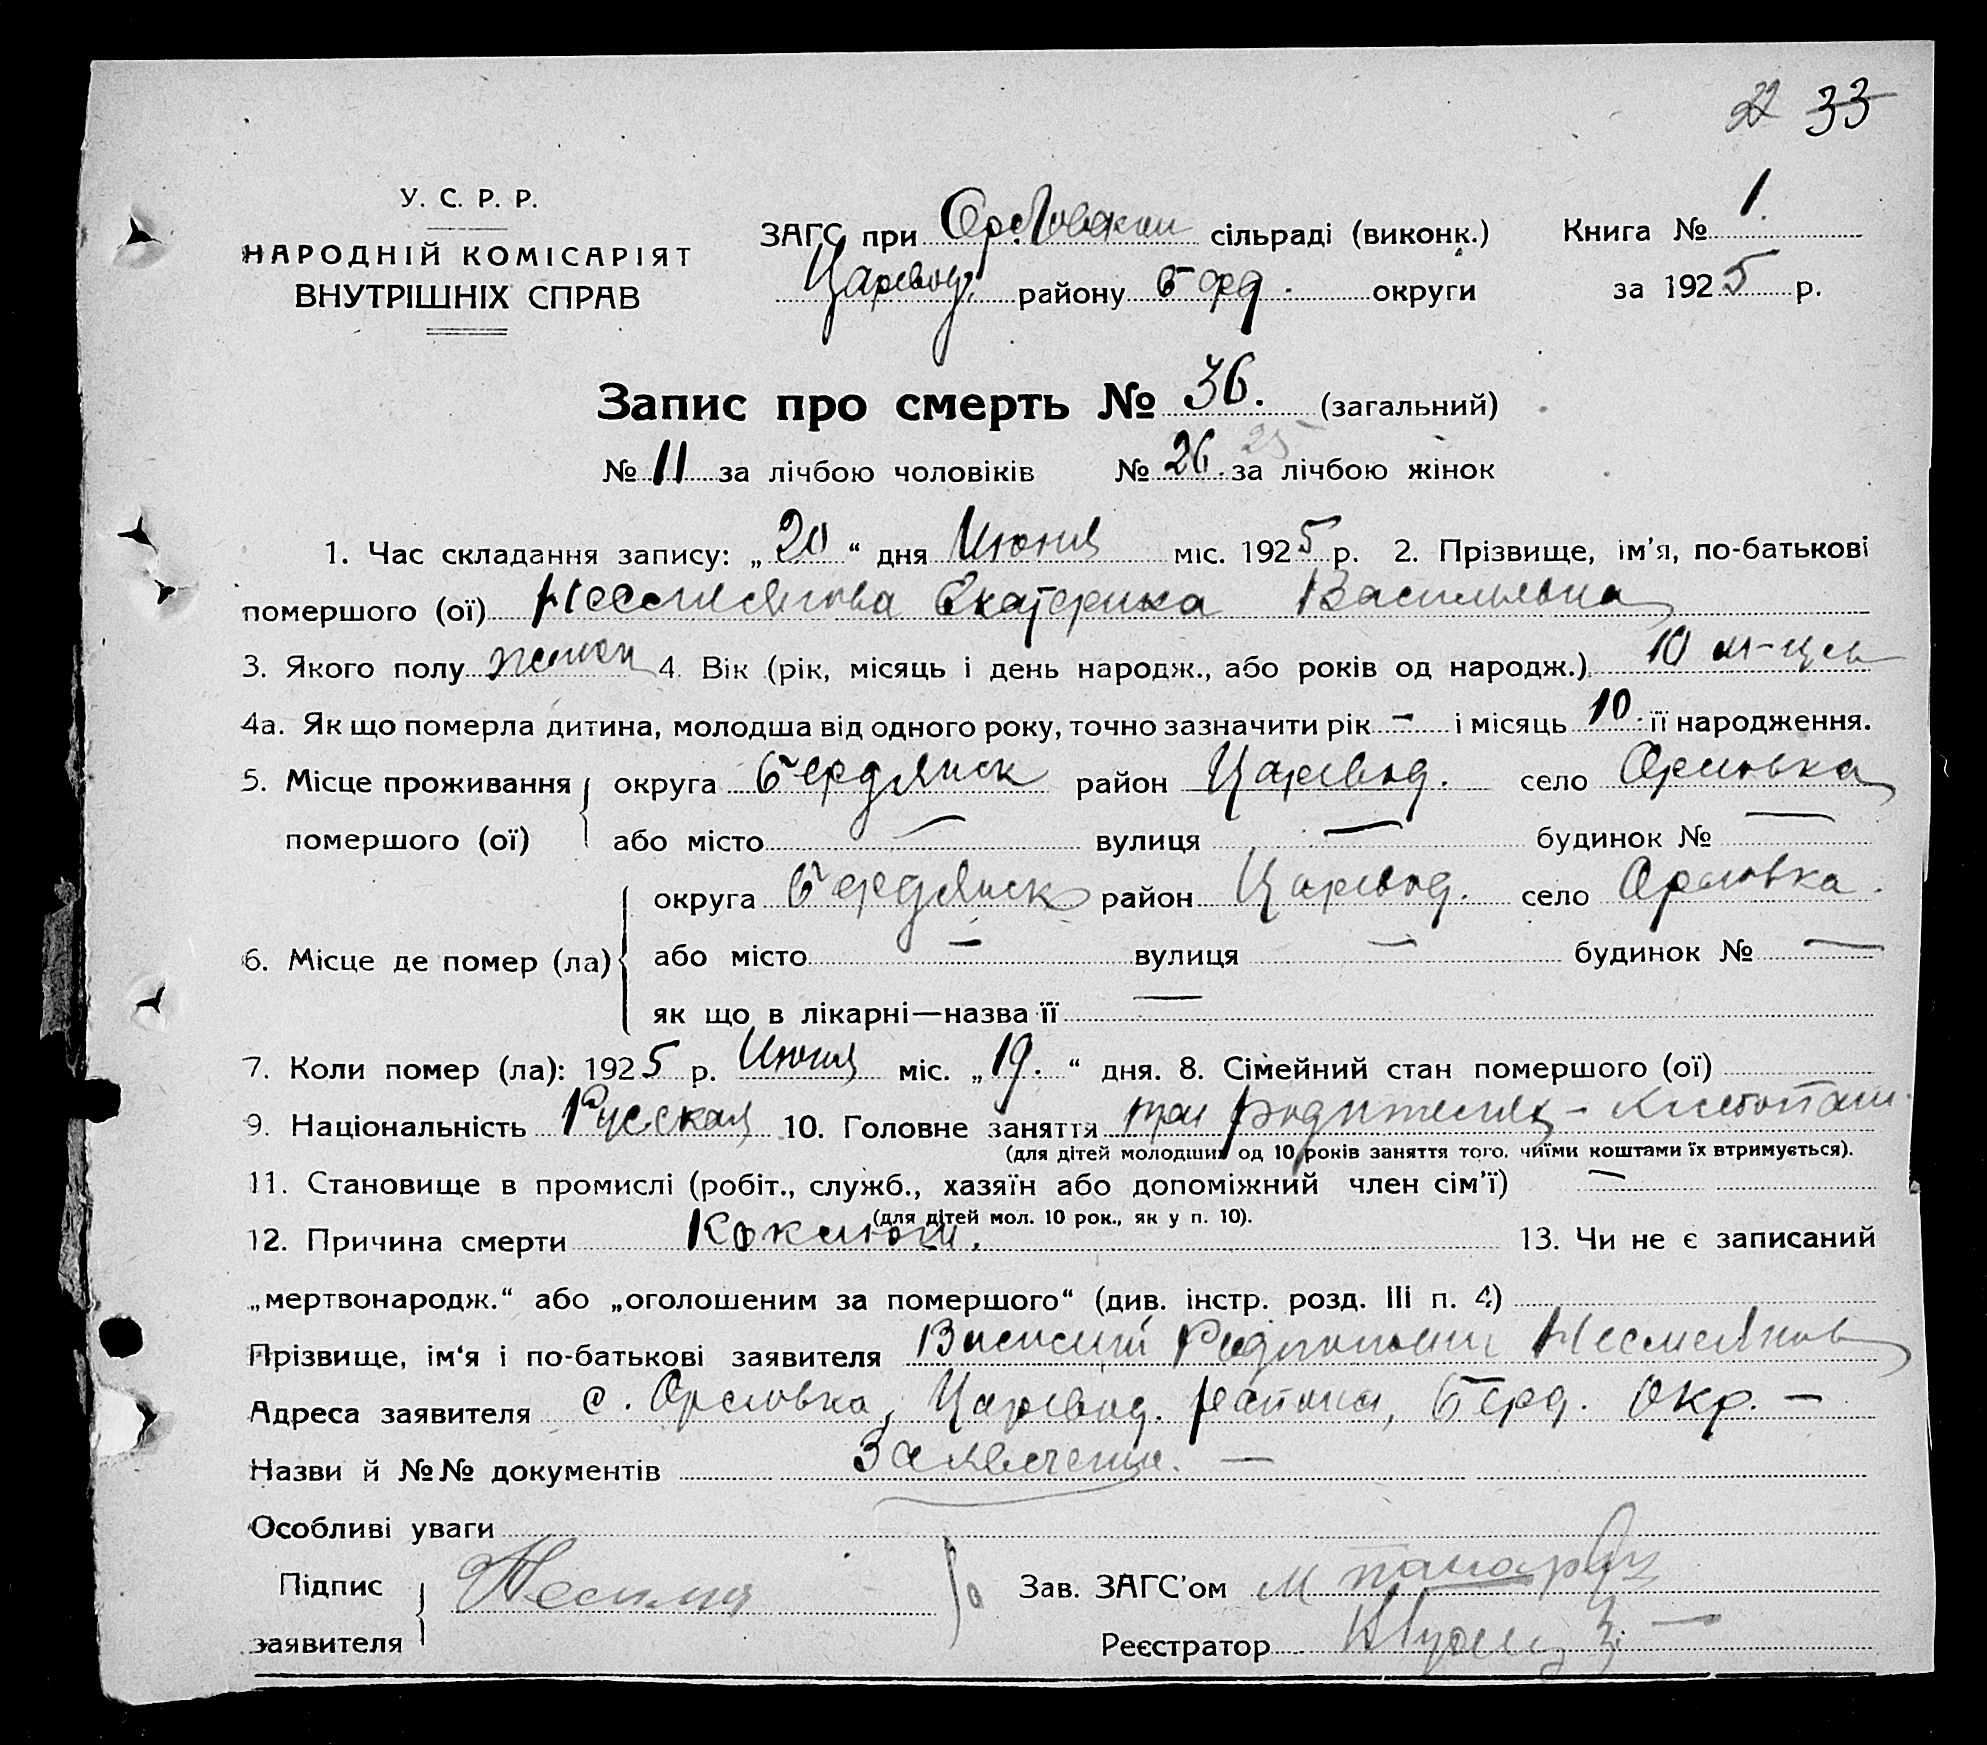 22 33
У. С. Р. Р.
НАРОДНІЙ КОМІСАРІЯТ
ВНУТРІШНІХ СПРАВ
ЗАГС при Орловском сільраді (виконк.)
Царевод. району Берд. округи
Книга № 1.
за 1925 р.
Запис про смерть № 36. (загальний)
№ 11 за лічбою чоловіків № 26. 25 за лічбою жінок
1. Час складання запису: „20“ дня Июня міс. 1925 р. 2. Прізвище, ім'я, по-батькові
помершого (ої) Несмеянова Екатерина Васильевна
3. Якого полу женск 4. Вік (рік, місяць і день народж., або років од народж.) 10 м-цев
4а. Як що померла дитина, молодша від одного року, точно зазначити рік — і місяць 10 її народження.
5. Місце проживання помершого (ої) округа Бердянск район Царевод. село Орловка
або місто — вулиця — будинок № —
6. Місце де помер (ла) округа Бердянск район Царевод. село Орловка.
або місто — вулиця — будинок № —
як що в лікарні—назва її —
7. Коли помер (ла): 1925 р. Июня міс. „19.“ дня. 8. Сімейний стан помершого (ої)
9. Національність Русская 10. Головне заняття при родителях - хлебопаш.
(для дітей молодших од 10 років заняття того, чиїми коштами їх втримується).
11. Становище в промислі (робіт., служб., хазяїн або допоміжний член сім'ї) —
(для дітей мол. 10 рок., як у п. 10).
12. Причина смерти Коклюш. 13. Чи не є записаний
„мертвонародж.“ або „оголошеним за помершого“ (див. інстр. розд. III п. 4)
Прізвище, ім'я і по-батькові заявителя Василий Родионович Несмеянов
Адреса заявителя с. Орловка, Царевод. района, Берд. Окр. —
Назви й №№ документів Заявление. —
Особливі уваги
Підпис заявителя Несмея
Зав. ЗАГС'ом
Реєстратор